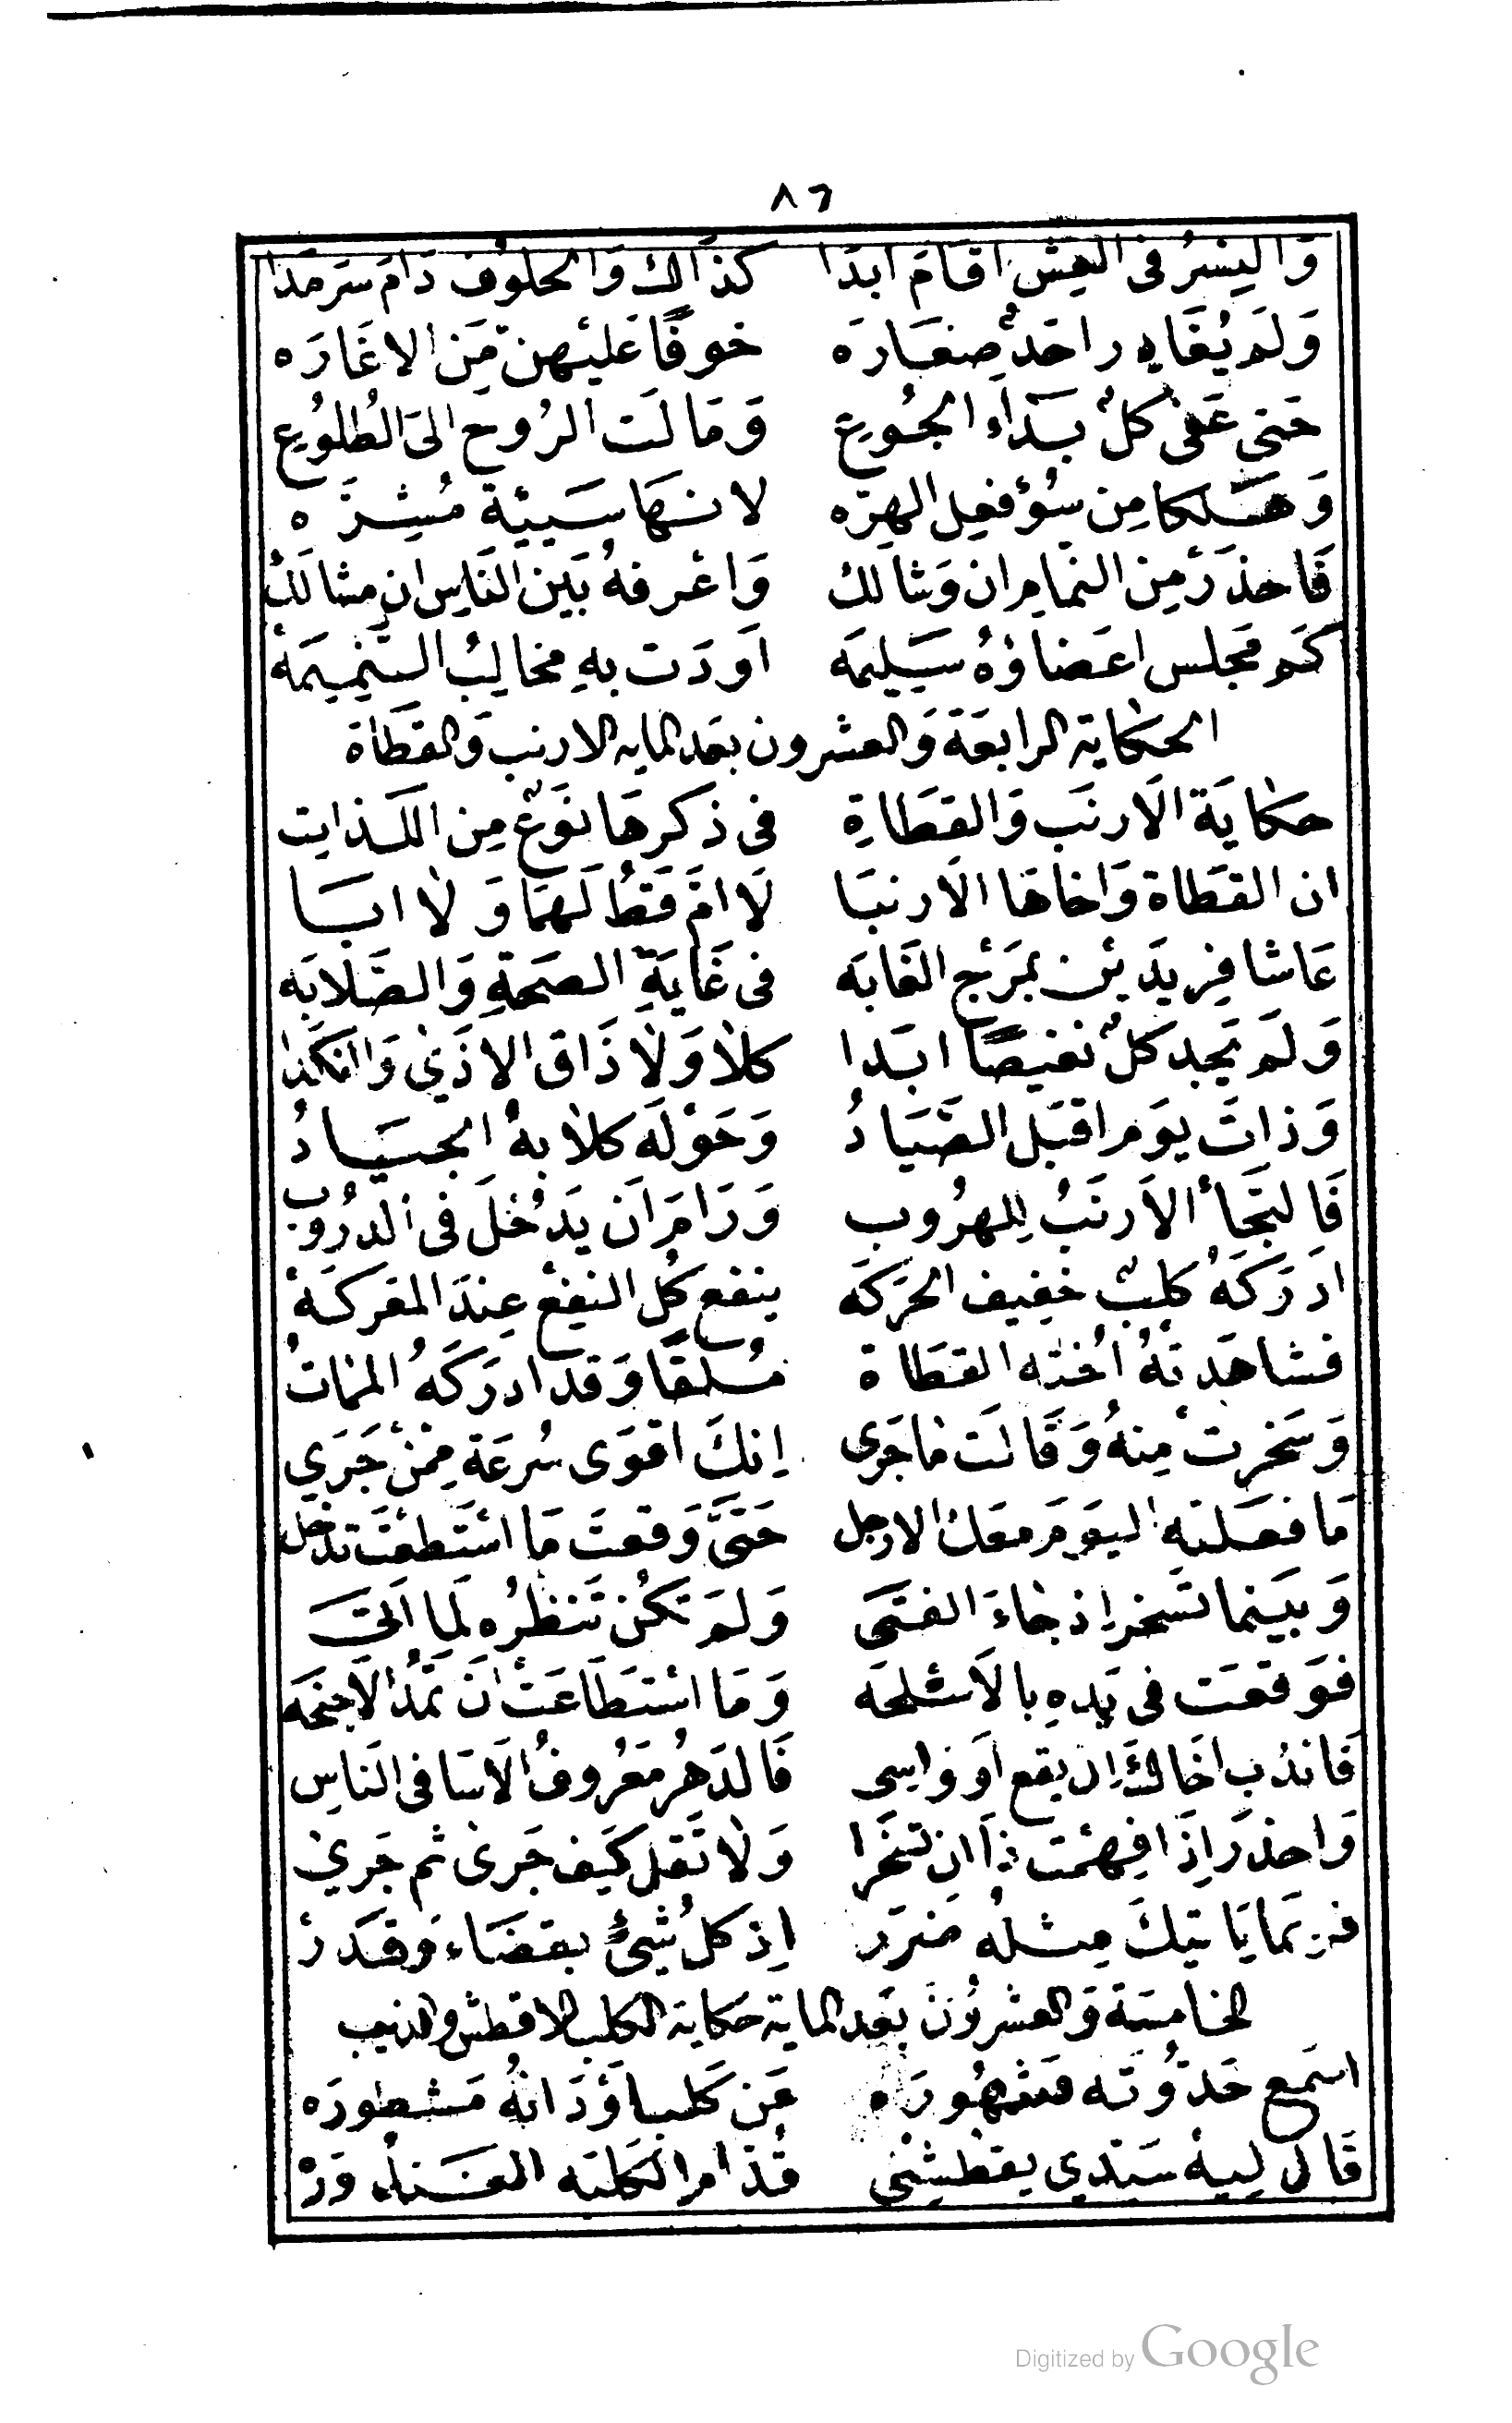 ٨٦
وَالنِسرُ فى العِش اقَامَ ابدَا كذَاكَ وَالحلوُف دَامَ سَرمَدَا
وَلَم يُغَادِر احَدٌ صِغَارَه خَوفًا عَليْهِن مَن الاغَارَه
حَتى عَفى كلٌ بَدَاءِ الجُوع وَمَالَت الرُوحَ الىَ الطُلوُع
وَهَلكا مِن سُوُء فعِل الهِرّه لانهَا سَيِيْة مُشِرَّه
فَاحذَر مِن النمامِ ان وَشَالكْ وَاعْرفهُ بَين النَاسِ ان مشَالَكْ
كَم مَجلس اعَضاؤهُ سَلِيمَه اَودَت بهِ مخَالِبُ النَمِيمَه
الحكَاية الرابعَة وَالعشرون بعَد المايه الارنب وَالقطَاة
حكايَة الاَرنَب وَالقطَاةِ فى ذكرهَا نَوعٌ مِن اللَذاتِ
ان القطَاة وَاخاهَا الاَرنبَا لَا امَّ قَطُ لَهمَا وَلا ابَا
عَاشا فِريدَيْن بمَرْج الغَابَه فى غَايَةِ الصحَةِ وَالصَلابَه
وَلَم يَجِد كلٌ نغيصًا ابَدا كلا وَلا ذَاق الاذَى وَالنكَدَا
وَذاتَ يوَم اقبَل الصَيَادُ وَحَوْلَه كلابهُ الجيَادُ
فَالتجَأ الاَرنَبُ لِلهرُوب وَرَامَ اَن يَدْخُلَ فى الدرُوب
ادرَكَهُ كلبٌ خفِيف الحرَكَه ينفع كُل النفِعْ عِندَ المعركَهْ
فشاهَدتهُ اُختهُ القطَاة مُلقًا وَقد ادرَكَهُ الممَاتُ
وَسَخِرت مِنهُ وَقَالَت مَاجَرى اِنكَ اقوَى سُرعَة مِمَّن جَرَي
مَا فعَلته اليوَم مَعَك الارجل حَتىَّ وَقعتَ مَا استَطعْتَ تدخل
وَبينما تَسخر اِذ جَاءَ الفتَى وَلَم تكُن تَنظرُه لَما اَتى
فوَقعَت فى يَدهِ بالاَسْلحَه وَمَا اسْتطَاعَتْ اَن تَمُدَ الاَجنحَه
فَاندُب اخَاكَ اِن يقع اَوفواسِى فَالدَهرُ مَعرُوفُ الاَسَا فى النَاسِ
وَاحذَر اِذَا فِهمْت ذا ان تسخَرا وَلا تَقل كَيف جَرى ثم جَري
فرِبمَا يَاتيكَ مِثلهُ ضرَر اِذ كلُ شيْئٍ بقضَاء وَقَدَرْ
الخامسَة وَالعشروُنَ بَعَد الماية حكاية الكلب الاقطش والذيب
اسمع حَدّوُته مَشهُورَه عَن كَلب اَوْدَانهُ مَشطورَه
قَال لِيهْ سَيّدي يقطشِنى قُدَام الكَلبَه الغَندورَهْ
Digitized by Google